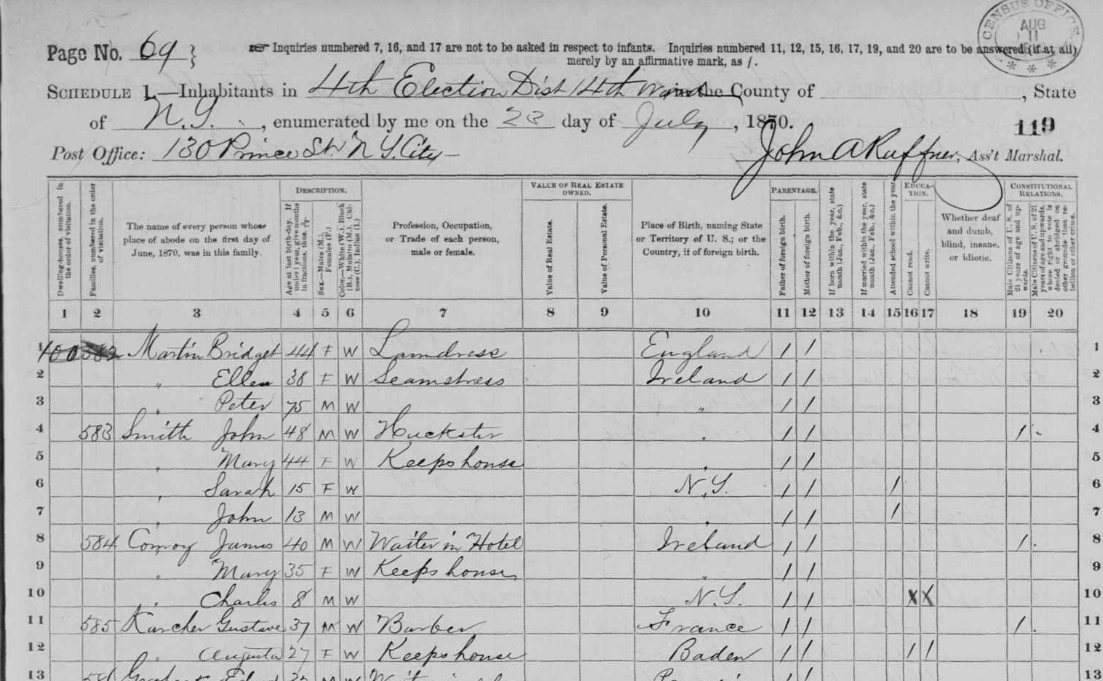 CENSUS OFFICE
AUG
11
Page No. 69 }
Inquiries numbered 7, 16, and 17 are not to be asked in respect to infants. Inquiries numbered 11, 12, 15, 16, 17, 19, and 20 are to be answered (if at all)
merely by an affirmative mark, as /.
SCHEDULE 1.—Inhabitants in 4th Election Dist 14th Ward the County of , State
of N.Y. , enumerated by me on the 23 day of July, 1870.
119
Post Office: 130 Prince St. N.Y. City John A Ruffner, Ass't Marshal.
DESCRIPTION. VALUE OF REAL ESTATE OWNED. PARENTAGE. EDUCATION. CONSTITUTIONAL RELATIONS.
Dwelling-houses, numbered in the order of visitation.
Families, numbered in the order of visitation.
The name of every person whose place of abode on the first day of June, 1870, was in this family.
Age at last birth-day. If under 1 year, give months in fractions, thus,
Sex.—Males (M.), Females (F.)
Color.—White (W.), Black (B.), Mulatto (M.), Chinese (C.), Indian (I.)
Profession, Occupation, or Trade of each person, male or female.
Value of Real Estate.
Value of Personal Estate.
Place of Birth, naming State or Territory of U. S.; or the Country, if of foreign birth.
Father of foreign birth.
Mother of foreign birth.
If born within the year, state month (Jan., Feb., &c.)
If married within the year, state month (Jan., Feb., &c.)
Attended school within the year.
Cannot read.
Cannot write.
Whether deaf and dumb, blind, insane, or idiotic.
Male Citizens of U. S. of 21 years of age and upwards.
Male Citizens of U. S. of 21 years of age and upwards, whose right to vote is denied or abridged on other grounds than rebellion or other crime.
1 2 3 4 5 6 7 8 9 10 11 12 13 14 15 16 17 18 19 20
1 400 582 Martin Bridget 44 F W England / / 1
2 " Ellen 38 F W Seamstress Ireland / / 2
3 " Peter 75 M W " / / 3
4 583 Smith John 48 M W Huckster " / / / 4
5 " Mary 44 F W Keeps house " / / 5
6 " Sarah 15 F W N.Y. / / / 6
7 " John 13 M W " / / / 7
8 584 Conroy James 40 M W Waiter in Hotel Ireland / / / 8
9 " Mary 35 F W Keeps house " / / 9
10 " Charles 8 M W N.Y. / / X X 10
11 585 Karcher Gustave 37 M W Barber France / / / 11
12 " Augusta 27 F W Keeps house Baden / / / / 12
13 13